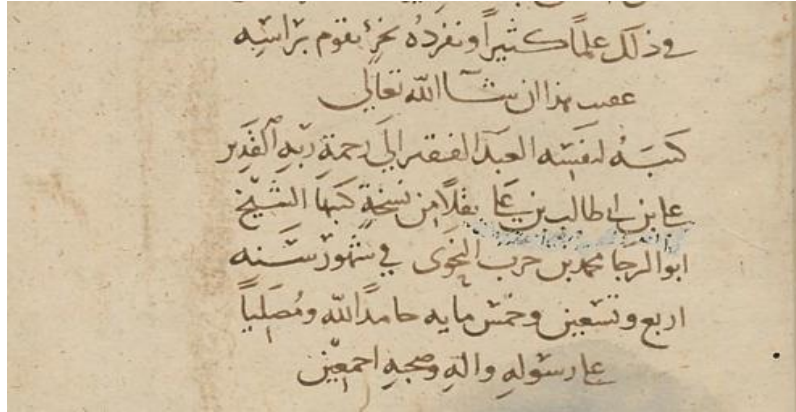 في ذلك علماً كثيراً ونفردُه بجزءٍ يقوم برأسِه
عقيب هذا ان شآ الله تعالى
كتبَهُ لنفسِه العبد الفقير الى رحمةِ ربّهِ القَدِير
علي بن ابي طالب بن علي نقلاً من نسخةٍ كتبها الشيخ
ابو الرجا محمد بن حرب النحوى في شهور سنه
اربع وتسعين وخمس مايه حامداً لله ومُصَلياً
على رسولهِ وآلهِ وصحبهِ اجمعين